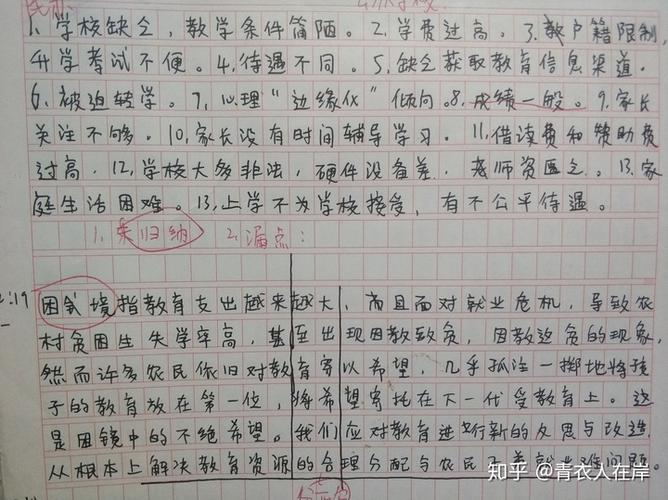 1.学校缺乏,教学条件简陋。2.学费过高。3.教户籍限制,
升学考试不便。4.待遇不同。5.缺乏获取教育信息渠道.
6.被迫转学。7.心理“边缘化”倾向。8.成绩一般。9.家长
关注不够。10.家长没有时间辅导学习。11.借读费和赞助费
过高。12.学校大多非法,硬件设备差.老师资匮乏。13.家
庭生活困难。13.上学不为学校接受,有不公平待遇。
1.未归纳 2.漏点:
2:19
困境指教育支出越来越大,而且面对就业危机,导致农
村贫困生失学率高,甚至出现因教致贫,因教返贫的现象,
然而许多农民依旧对教育寄以希望,几乎孤注一掷地将孩
子的教育放在第一位,将希望寄托在下一代受教育上。这
是困镜中的不绝希望。我们应对教育进行新的反思与改造.
从根本上解决教育资源的合理分配与农民就业难问题。
知乎 @青衣人在岸